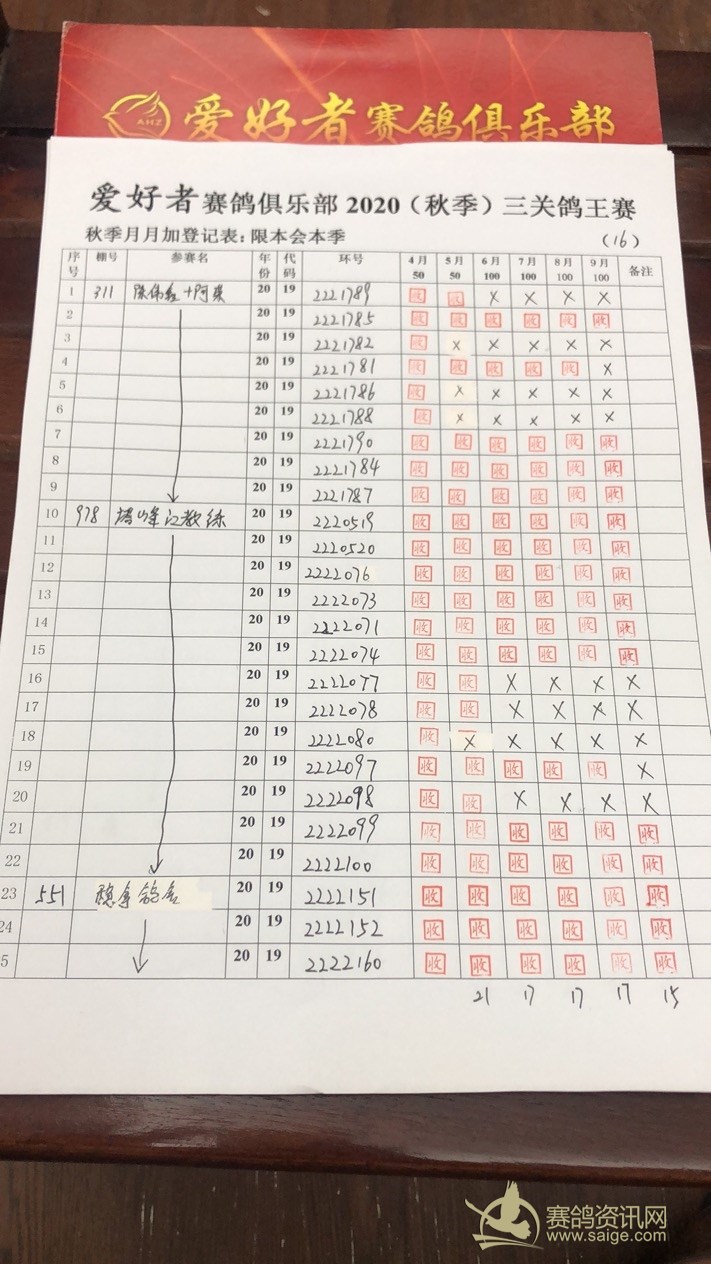 AHZ 爱好者赛鸽俱乐部
爱好者赛鸽俱乐部 2020（秋季）三关鸽王赛
秋季月月加登记表：限本会本季 （16）
序号 棚号 参赛名 年份 代码 环号 4月50 5月50 6月100 7月100 8月100 9月100 备注
1 311 20 19 2221789 收 收 X X X X
2 20 19 2221785 收 收 收 收 收 收
3 20 19 2221782 收 X X X X X
4 20 19 2221781 收 收 收 收 收 X
5 20 19 2221786 收 X X X X X
6 20 19 2221788 收 X X X X X
7 20 19 2221790 收 收 收 收 收 收
8 20 19 2221784 收 收 收 收 收 收
9 20 19 2221787 收 收 收 收 收 收
10 978 20 19 2220519 收 收 收 收 收 收
11 20 19 2220520 收 收 收 收 收 收
12 20 19 2222076 收 收 收 收 收 收
13 20 19 2222073 收 收 收 收 收 收
14 20 19 2222071 收 收 收 收 收 收
15 20 19 2222074 收 收 收 收 收 收
16 20 19 2222077 收 收 X X X X
17 20 19 2222078 收 收 X X X X
18 20 19 2222080 收 X X X X X
19 20 19 2222097 收 收 收 收 收 X
20 20 19 2222098 收 收 X X X X
21 20 19 2222099 收 收 收 收 收 收
22 20 19 2222100 收 收 收 收 收 收
23 551 20 19 2222151 收 收 收 收 收 收
24 20 19 2222152 收 收 收 收 收 收
5 20 19 2222160 收 收 收 收 收 收
21 17 17 17 15
赛鸽资讯网
www.saige.com